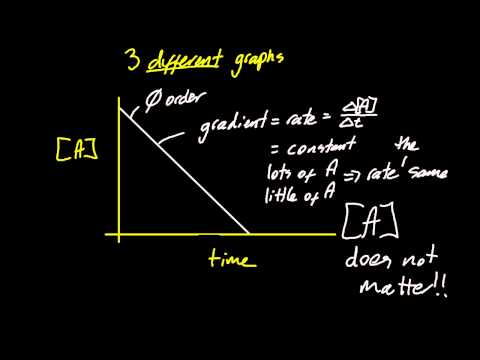 3 different graphs
Ø order
gradient = rate = Δ[A]/Δt
= constant
lots of A ⇒ rate the same
little of A
[A]
time
[A]
does not
matter!!